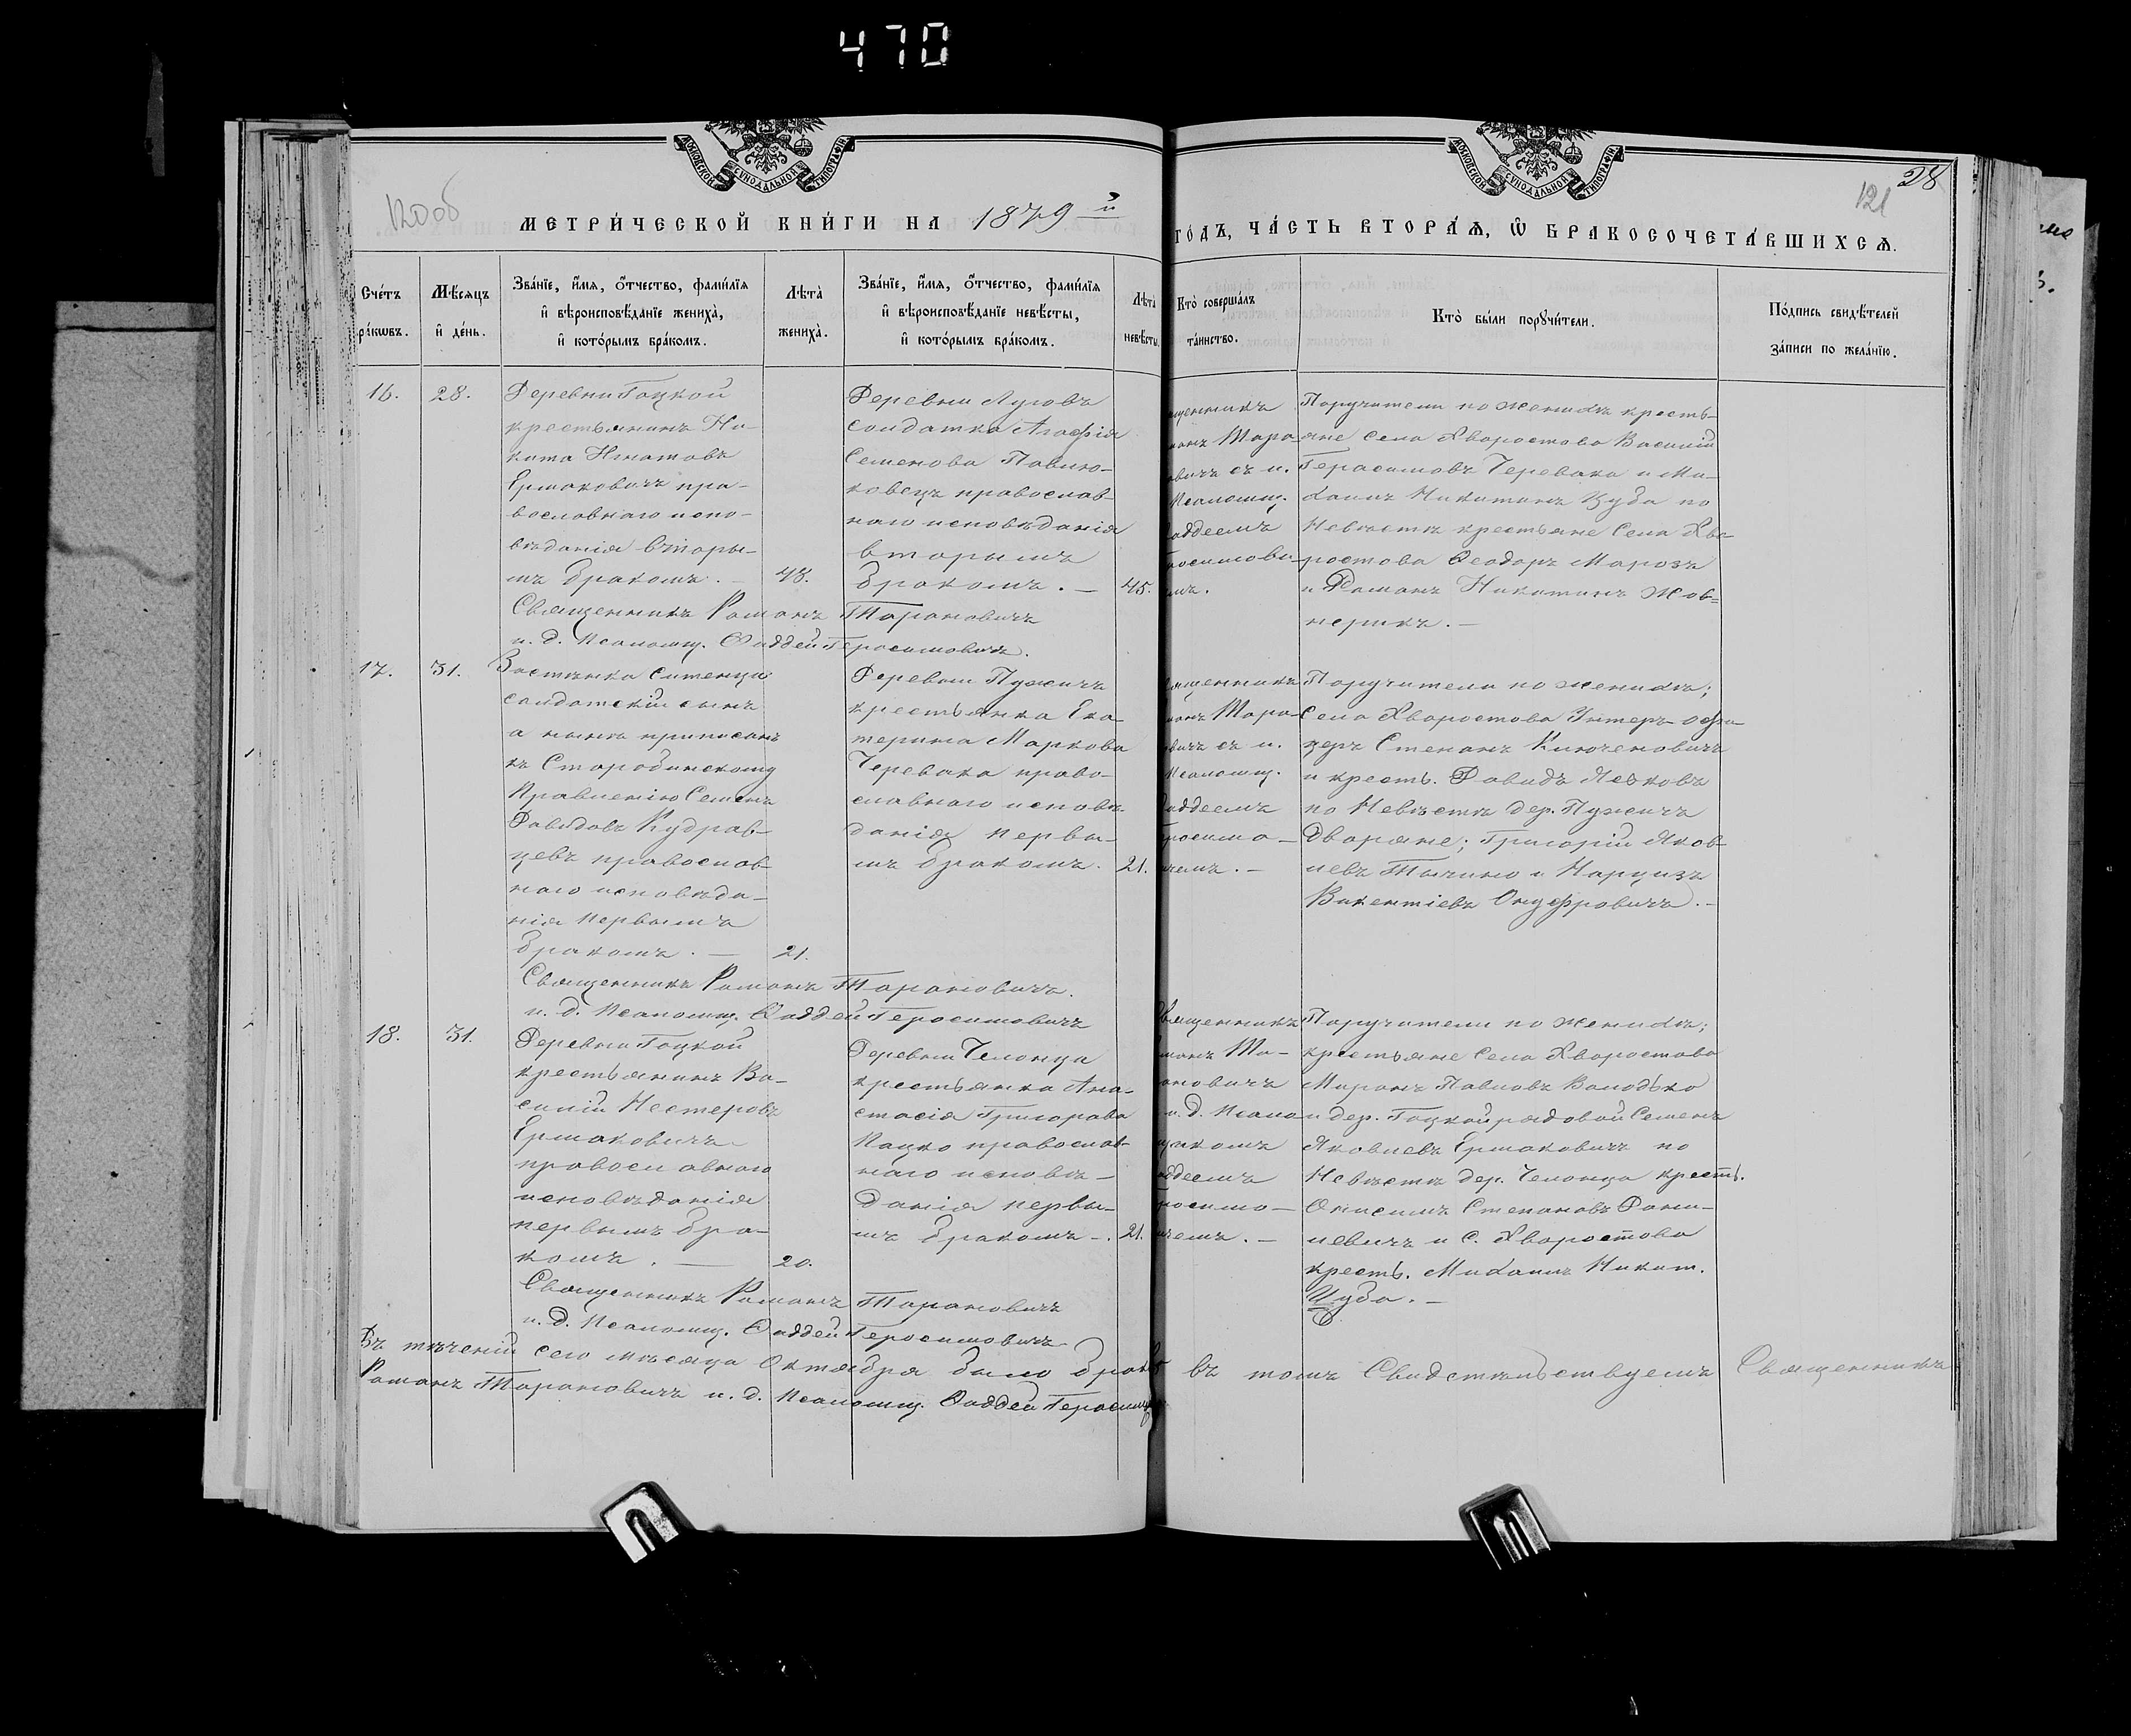 470
МОСКОВСКОЙ СѴНОДАЛЬНОЙ ТИПОГРАФІИ
МОСКОВСКОЙ СѴНОДАЛЬНОЙ ТИПОГРАФІИ
120об
121
28
МЕТРИ́ЧЕСКОЙ КНИ́ГИ НА 1879 й
ГО́ДЪ, ЧА́СТЬ ВТОРА́Ѧ, Ѽ БРАКОСОЧЕТА́ВШИХСѦ.
Сче́тъ
ра́кѡвъ.
Мѣ́сѧцъ
и҆ де́нь.
Зва́нїе, и҆́мѧ, ѻ҆́тчество, фами́лїѧ
и҆ вѣроисповѣ́данїе жениха̀,
и҆ кото́рымъ бра́комъ.
Лѣ́та
жениха̀.
Зва́нїе, и҆́мѧ, ѻ҆́тчество, фами́лїѧ
и҆ вѣроисповѣ́данїе невѣ́сты,
и҆ кото́рымъ бра́комъ.
Лѣ́та
невѣ́сты.
Кто̀ соверша́лъ
та́инство.
Кто̀ бы́ли порꙋчи́тели.
По́дпись свидѣ́телей
за́писи по жела́нїю.
16.
28.
Деревни Гоцкой
крестьянинъ Ни-
кита Игнатовъ
Ермаковичъ пра-
вославнаго испо-
вѣданія вторы-
мъ бракомъ. —
48.
Деревни Луговъ
солдатка Агафія
Семенова Павлю-
ковецъ православ-
наго исповѣданія
вторымъ
бракомъ. —
45.
щенникъ
манъ Тара-
овичъ съ и.
Псаломщ.
аддеемъ
расимови-
мъ.
Поручители по женихѣ кресть-
яне села Хворостова Василій
Герасимовъ Черевака и Ми-
хаилъ Никитинъ Цуба по
Невѣстѣ крестьяне Села Хво-
ростова Ѳеодоръ Марозъ
и Романъ Никитинъ Жов-
нерикъ. —
Священникъ Романъ Тарановичъ
и. д. Псаломщ. Ѳаддей Герасимовичъ.
17.
31.
Застѣнка Ситенца
солдатскій сынъ
а нынѣ приписанъ
къ Старобинскому
Правленію Семенъ
Давидовъ Кудрав-
цевъ православ-
наго исповѣда-
нія первымъ
бракомъ. —
21.
Деревни Пужичъ
крестьянка Ека-
терина Маркова
Черевака право-
славнаго исповѣ-
данія первы-
мъ бракомъ.
21.
ященникъ
манъ Тара-
овичъ съ и.
Псаломщ.
аддеемъ
расимо-
чемъ. —
Поручители по женихѣ;
Села Хворостова Унтеръ-офи-
церъ Степанъ Ключеновичъ
и кресть. Давидъ Левковъ
по Невѣстѣ дер. Пужичъ
Дворяне; Григорій Яков-
левъ Тычино и Нарцизъ
Викентіевъ Онуфровичъ. —
Священникъ Романъ Тарановичъ.
и. д. Псаломщ. Ѳаддей Герасимовичъ
18.
31.
Деревни Гоцкой
крестьянинъ Ва-
силій Нестеровъ
Ермаковичъ
православнаго
исповѣданія
первымъ бра-
комъ. —
20.
Деревни Челонца
крестьянка Ана-
стасія Григорова
Кацко православ-
наго исповѣ-
данія первы-
мъ бракомъ —.
21.
Священникъ
манъ Та-
ановичъ
и. д. Псало-
щикомъ
аддеемъ
расимо-
чемъ. —
Поручители по женихѣ;
крестьяне Села Хворостова
Миронъ Павловъ Володько
и дер. Гоцкой рядовой Семенъ
Яковлевъ Ермаковичъ по
Невѣстѣ дер. Челонца кресть.
Онисимъ Степановъ Дани-
левичъ и С. Хворостова
кресть. Михаилъ Никит.
Цуба. —
Священникъ Романъ Тарановичъ
и. д. Псаломщ. Ѳаддей Герасимовичъ
Въ тѣченіи сего мѣсяца Октября было брак въ томъ Свидѣтельствуемъ Священникъ
Романъ Тарановичъ и. д. Псаломщ. Ѳаддей Герасимов